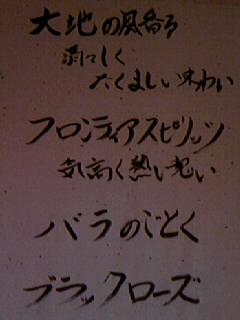 大地の風香る
雄々しく
たくましい味わい
フロンティアスピリッツ
気高く熱い想い
バラのごとく
ブラックローズ